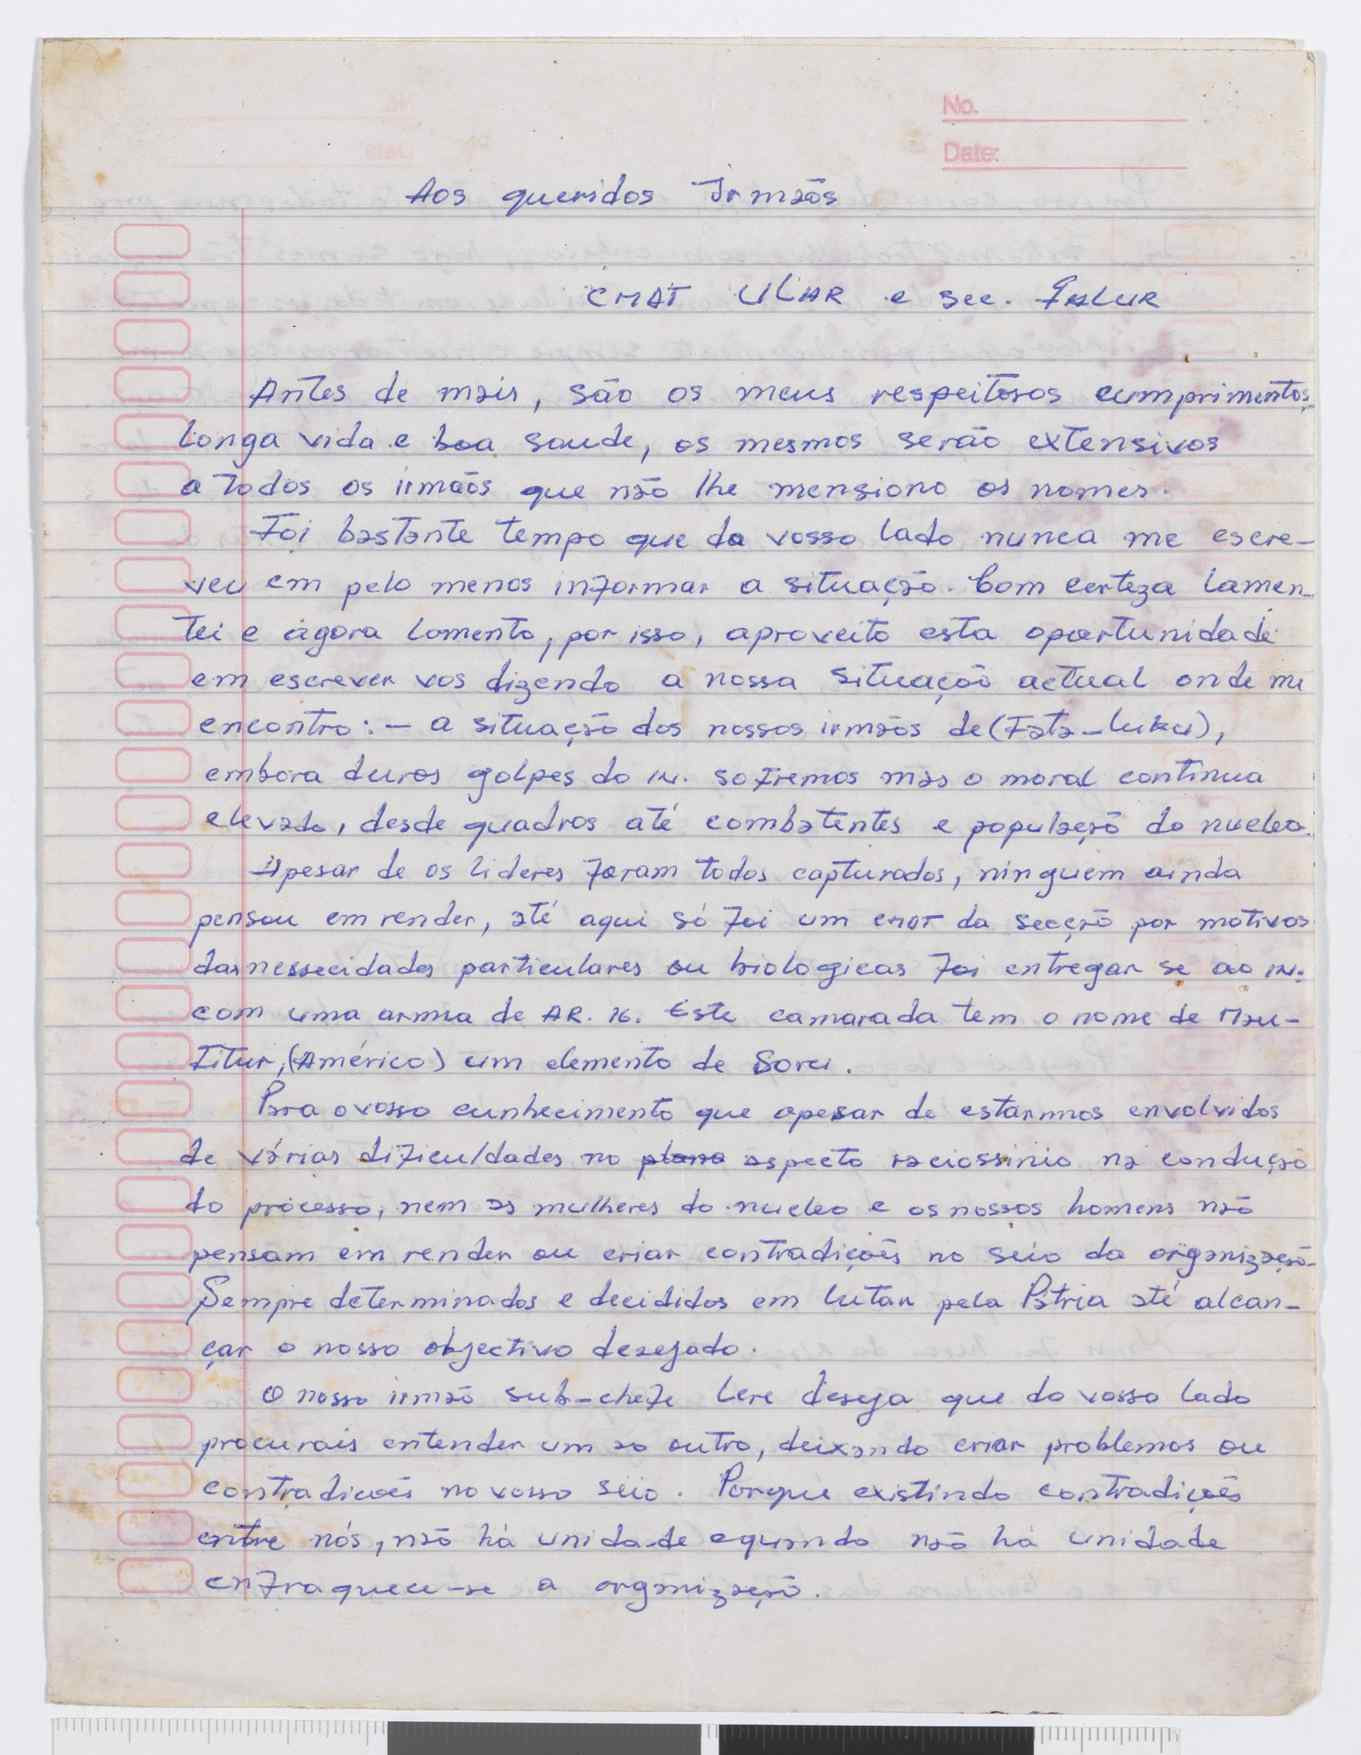 No.
Date:
Aos queridos Irmãos
CMDT ULAR e sec. FALUR
Antes de mais, são os meus respeitosos cumprimentos,
longa vida e boa saude, os mesmos serão extensivos
a todos os irmãos que não lhe mensiono os nomes.
Foi bastante tempo que do vosso lado nunca me escre-
veu em pelo menos informar a situação. Com certeza lamen-
tei e agora lamento, por isso, aproveito esta oportunidade
em escrever vos dizendo a nossa situação actual onde me
encontro: - a situação dos nossos irmãos de (Fata-luku),
embora duros golpes do in. sofremos mas o moral continua
elevado, desde quadros até combatentes e população do nucleo.
Apesar de os lideres foram todos capturados, ninguem ainda
pensou em render, até aqui só foi um cmdt da secção por motivos
das nessecidades particulares ou biologicas foi entregar se ao in.
com uma arma de AR. 16. Este camarada tem o nome de Mau-
Titur, (Américo) um elemento de Soru.
Para o vosso cunhecimento que apesar de estarmos envolvidos
de várias dificuldades no plano aspecto raciossinio na condução
do processo, nem as mulheres do nucleo e os nossos homens não
pensam em render ou criar contradições no seio da organização.
Sempre determinados e decididos em lutar pela Pátria até alcan-
çar o nosso objectivo desejado.
O nosso irmão sub-chefe Lere deseja que do vosso lado
procurais entender um ao outro, deixando criar problemas ou
contradições no vosso seio. Porque existindo contradições
entre nós, não há unidade e quando não há unidade
enfraquece-se a organização.